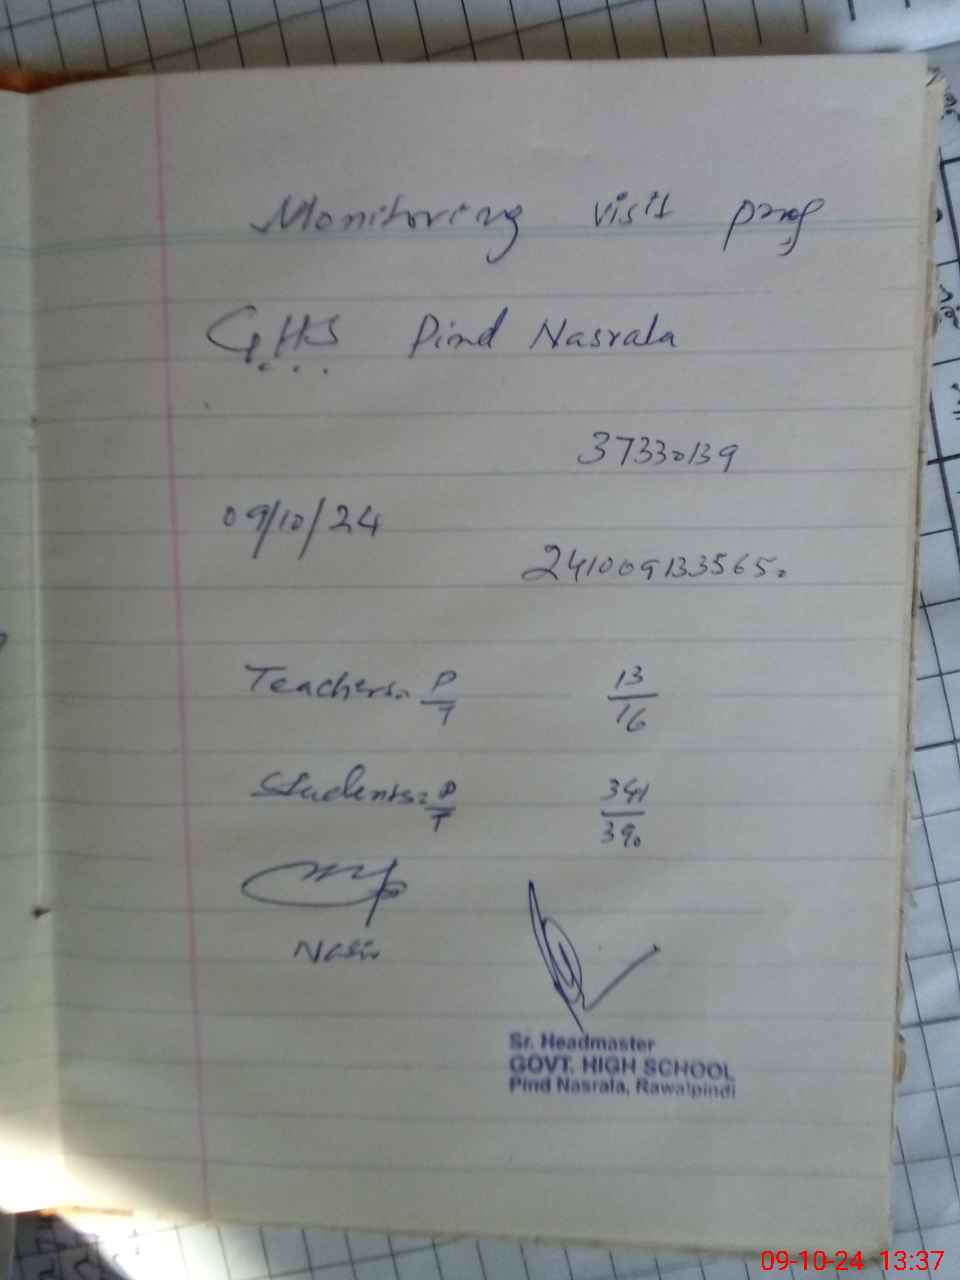 Monitoring visit prof
GHS Pind Nasrala
37330139
09/10/24
2410091335650
Teachers = P/T 13/16
Students = P/T 341/390
Nasir
Sr. Headmaster
GOVT. HIGH SCHOOL
Pind Nasrala, Rawalpindi
09-10-24 13:37